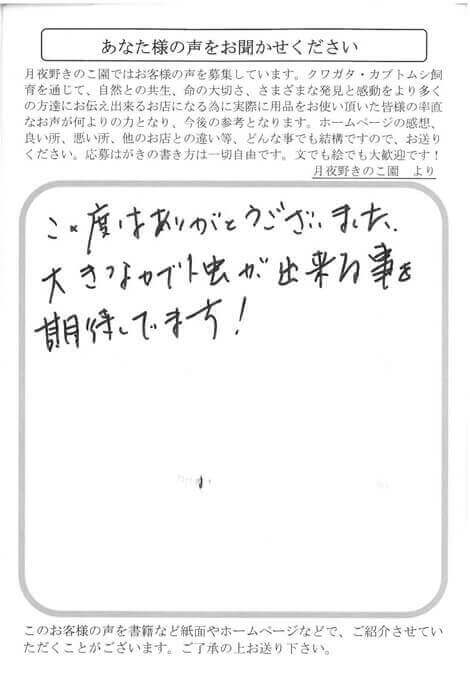 あなた様の声をお聞かせください
月夜野きのこ園ではお客様の声を募集しています。クワガタ・カブトムシ飼
育を通じて、自然との共生、命の大切さ、さまざまな発見と感動をより多く
の方達にお伝え出来るお店になる為に実際に用品をお使い頂いた皆様の率直
なお声が何よりの力となり、今後の参考となります。ホームページの感想、
良い所、悪い所、他のお店との違い等、どんな事でも結構ですので、お送り
ください。応募はがきの書き方は一切自由です。文でも絵でも大歓迎です！
月夜野きのこ園　より
この度はありがとうございました。
大きなカブト虫が出来る事を
期待してます！
このお客様の声を書籍など紙面やホームページなどで、ご紹介させてい
ただくことがございます。ご了承の上お送り下さい。